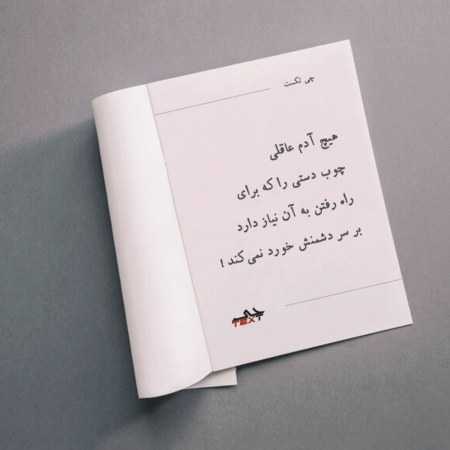 جی تکست
هیچ آدم عاقلی
چوب دستی را که برای
راه رفتن به آن نیاز دارد
بر سر دشمنش خورد نمی‌کند !
جی
TEXT